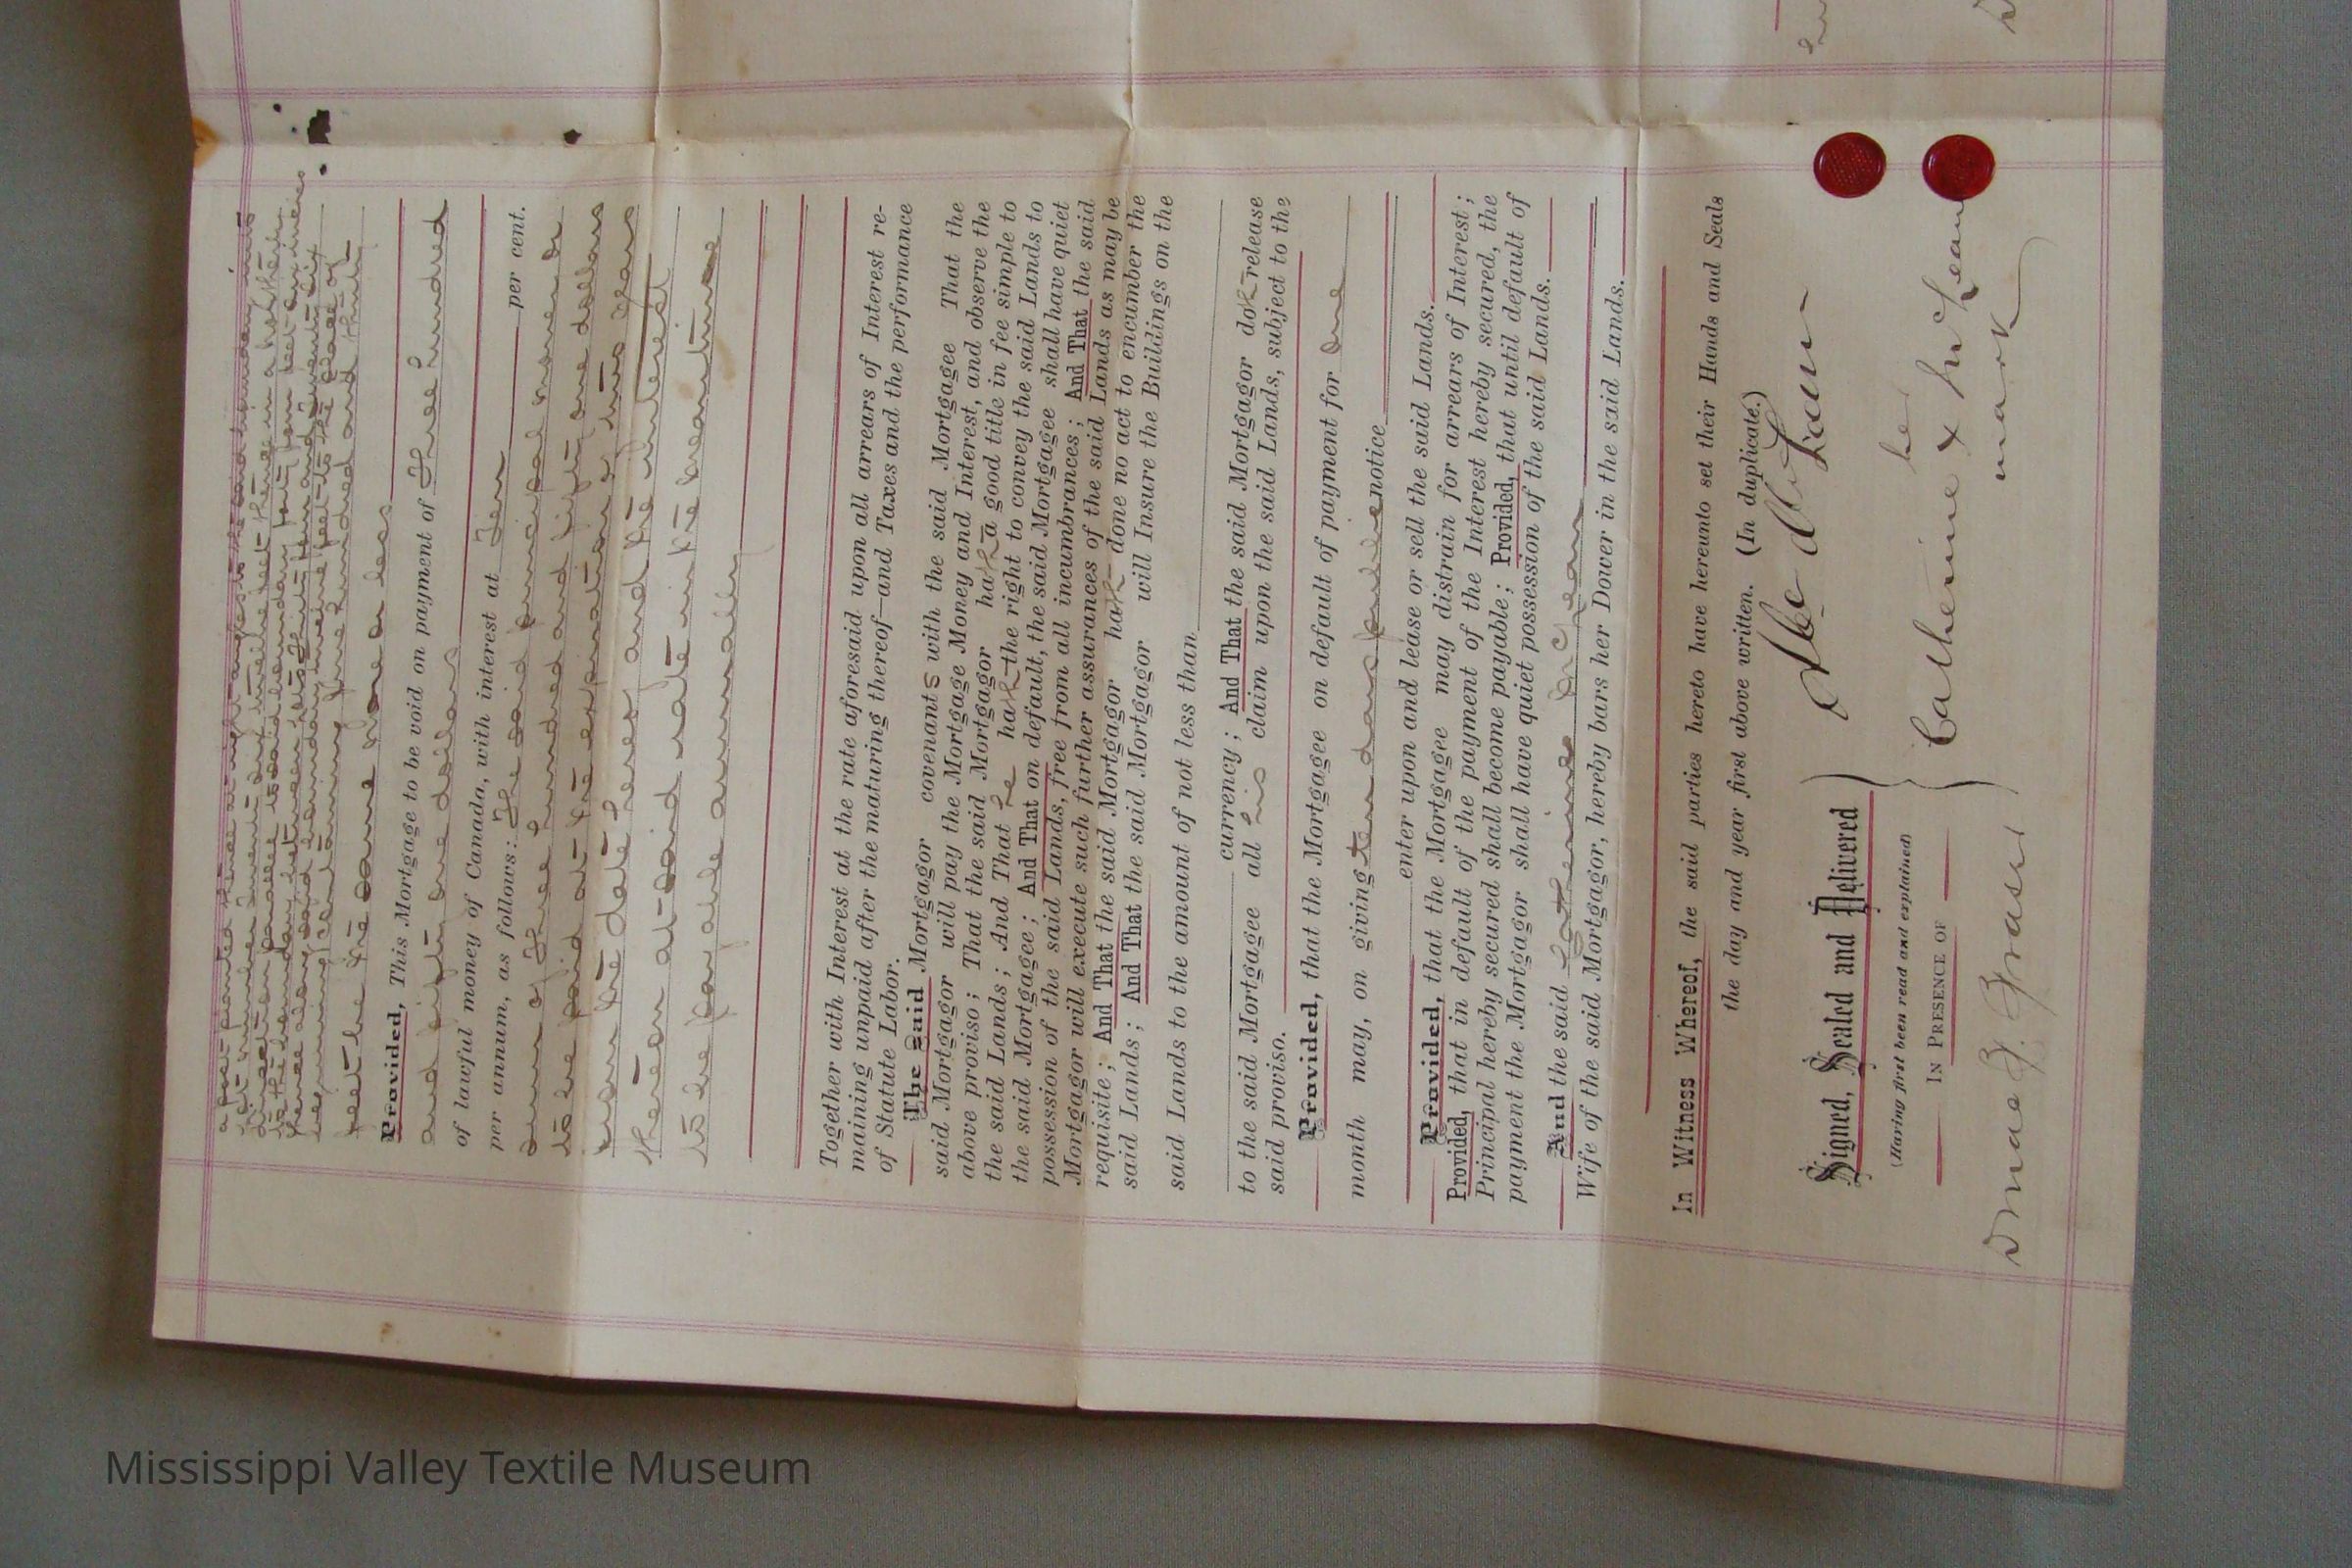 a post planted thence at right angles to the said boundary into
lot number seventy six twelve feet thence in a northerly
direction parallel to said boundary forty four feet six inches
to the boundary between lots thirty four and seventy six
thence along said boundary nine feet to the place of
beginning containing five hundred and thirty
feet be the same more or less
Provided, This Mortgage to be void on payment of Three hundred
and fifty one dollars
of lawful money of Canada, with interest at Ten per cent.
per annum, as follows: The said principal money or
sum of Three hundred and fifty one dollars
to be paid at the expiration of two years
from the date hereof and the interest
thereon at said rate in the meantime
to be payable annually
Together with Interest at the rate aforesaid upon all arrears of Interest re-
maining unpaid after the maturing thereof—and Taxes and the performance
of Statute Labor.
The Said Mortgagor covenants with the said Mortgagee That the
said Mortgagor will pay the Mortgage Money and Interest, and observe the
above proviso; That the said Mortgagor hath a good title in fee simple to
the said Lands; And That he hath the right to convey the said Lands to
the said Mortgagee; And That on default, the said Mortgagee shall have quiet
possession of the said Lands, free from all incumbrances; And That the said
Mortgagor will execute such further assurances of the said Lands as may be
requisite; And That the said Mortgagor hath done no act to encumber the
said Lands; And That the said Mortgagor will Insure the Buildings on the
said Lands to the amount of not less than
currency; And That the said Mortgagor doth release
to the said Mortgagee all his claim upon the said Lands, subject to the
said proviso.
Provided, that the Mortgagee on default of payment for one
month may, on giving ten days previous notice
enter upon and lease or sell the said Lands.
Provided, that the Mortgagee may distrain for arrears of Interest;
Provided, that in default of the payment of the Interest hereby secured, the
Principal hereby secured shall become payable; Provided, that until default of
payment the Mortgagor shall have quiet possession of the said Lands.
And the said Catherine McLean
Wife of the said Mortgagor, hereby bars her Dower in the said Lands.
In Witness Whereof, the said parties hereto have hereunto set their Hands and Seals
the day and year first above written. (In duplicate.)
Signed, Sealed and Delivered
(Having first been read and explained)
In Presence of
McLean
her
Catherine x McLean
mark
Mississippi Valley Textile Museum